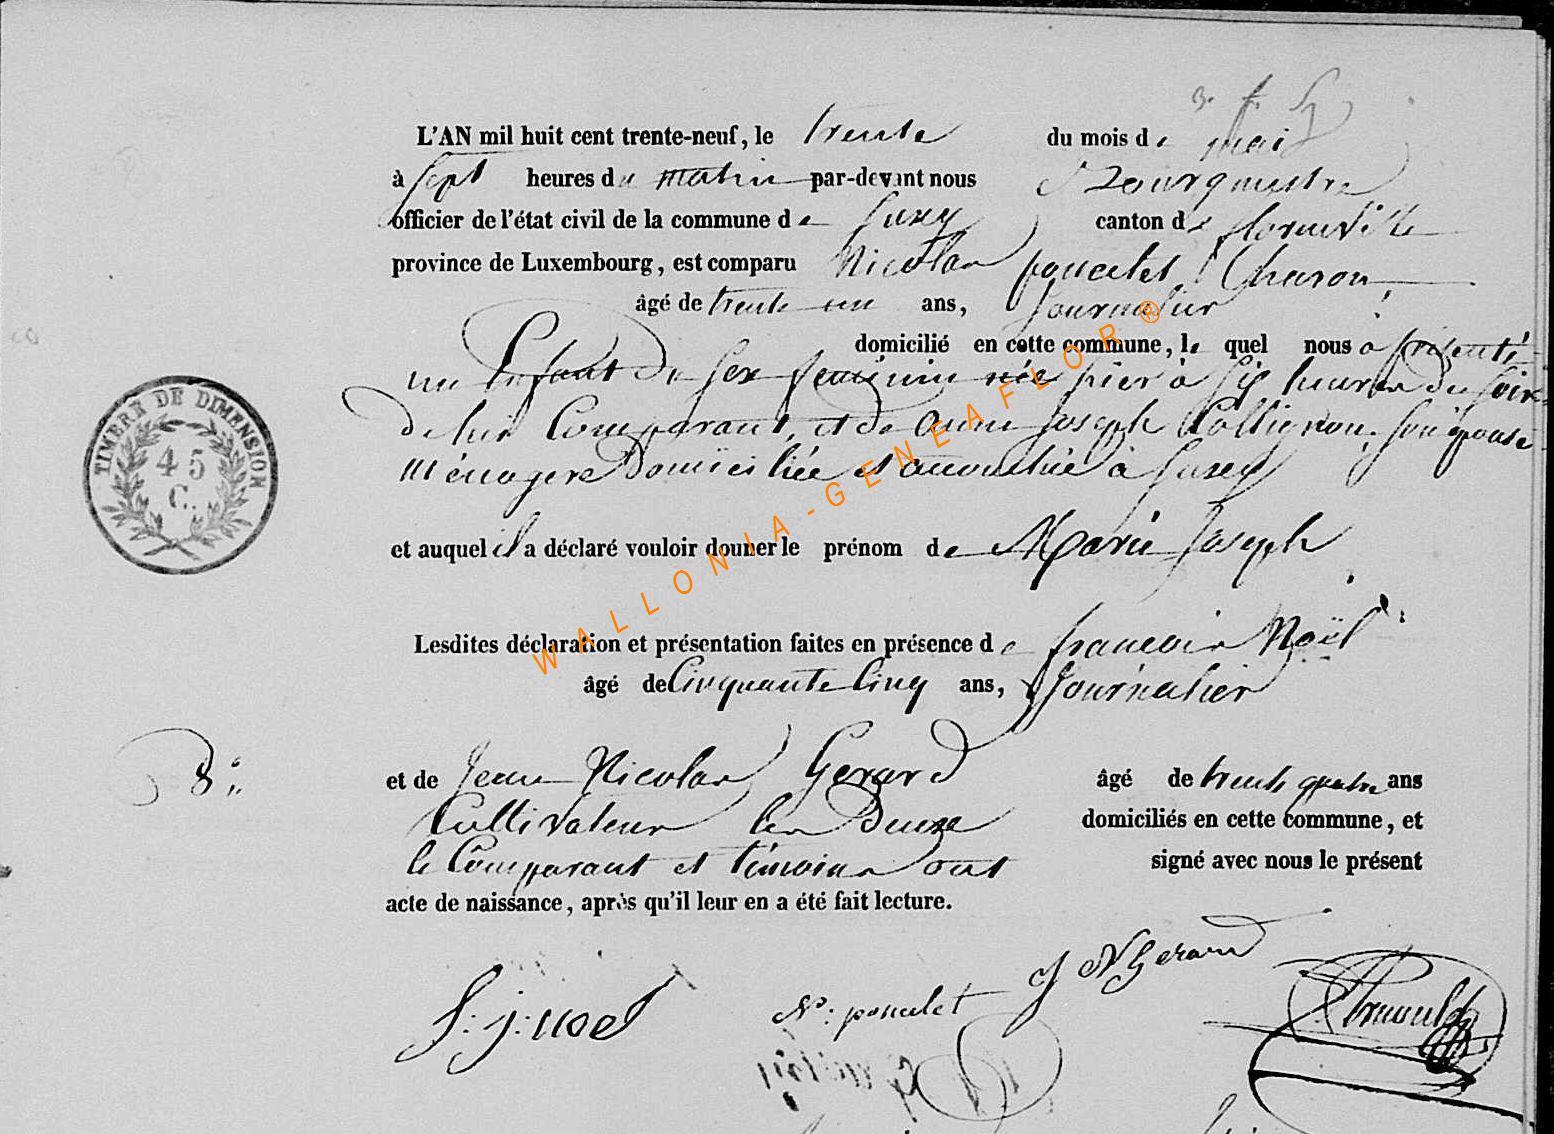 L'AN mil huit cent trente-neuf, le trente du mois de mai
à sept heures du matin par-devant nous Bourgmestre
officier de l'état civil de la commune de Suxy canton de florenville
province de Luxembourg, est comparu Nicolas poncelet Charon,
âgé de trente un ans, Journalier
domicilié en cette commune, le quel nous a présenté
un Enfant du sex feminin née hier à six heures du soire
de lui Comparant, et de Anne Joseph Collignon, son épouse
ménagere Domiciliée et accouchée à Suxy
et auquel il a déclaré vouloir donner le prénom de Marie Joseph
Lesdites déclaration et présentation faites en présence de francois Noël
âgé de Cinquante Cinq ans, Journalier
8
et de Jean Nicolas Gerard âgé de trente quatre ans
Cultivateur les Deuxe domiciliés en cette commune, et
le Comparant et témoins ont signé avec nous le présent
acte de naissance, après qu'il leur en a été fait lecture.
J N Gerard
f: j: noel
N: poncelet
TIMBRE DE DIMENSION
45
C.
WALLONIA-GENEAFLOR®